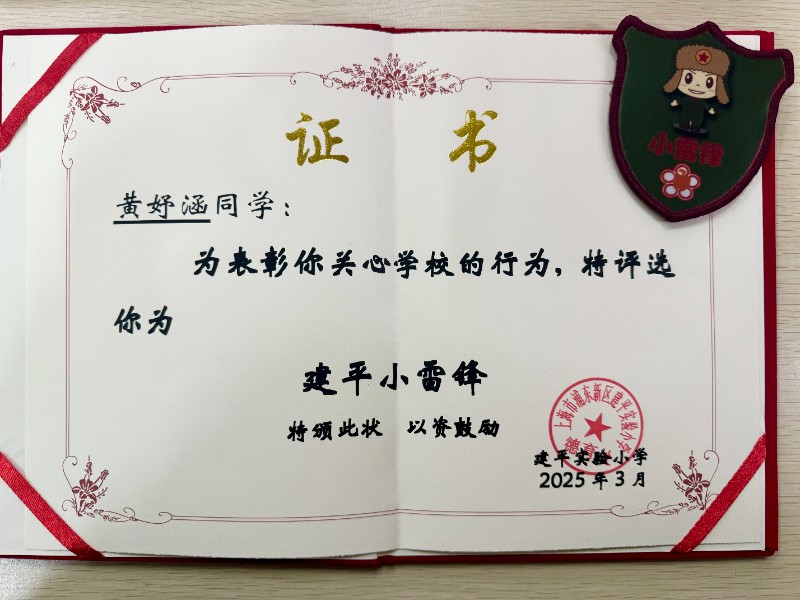 证书
小雷锋
黄妤涵同学：
为表彰你关心学校的行为，特评选
你为
建平小雷锋
特颁此状 以资鼓励
上海市浦东新区建平实验小学
德育
建平实验小学
2025年3月